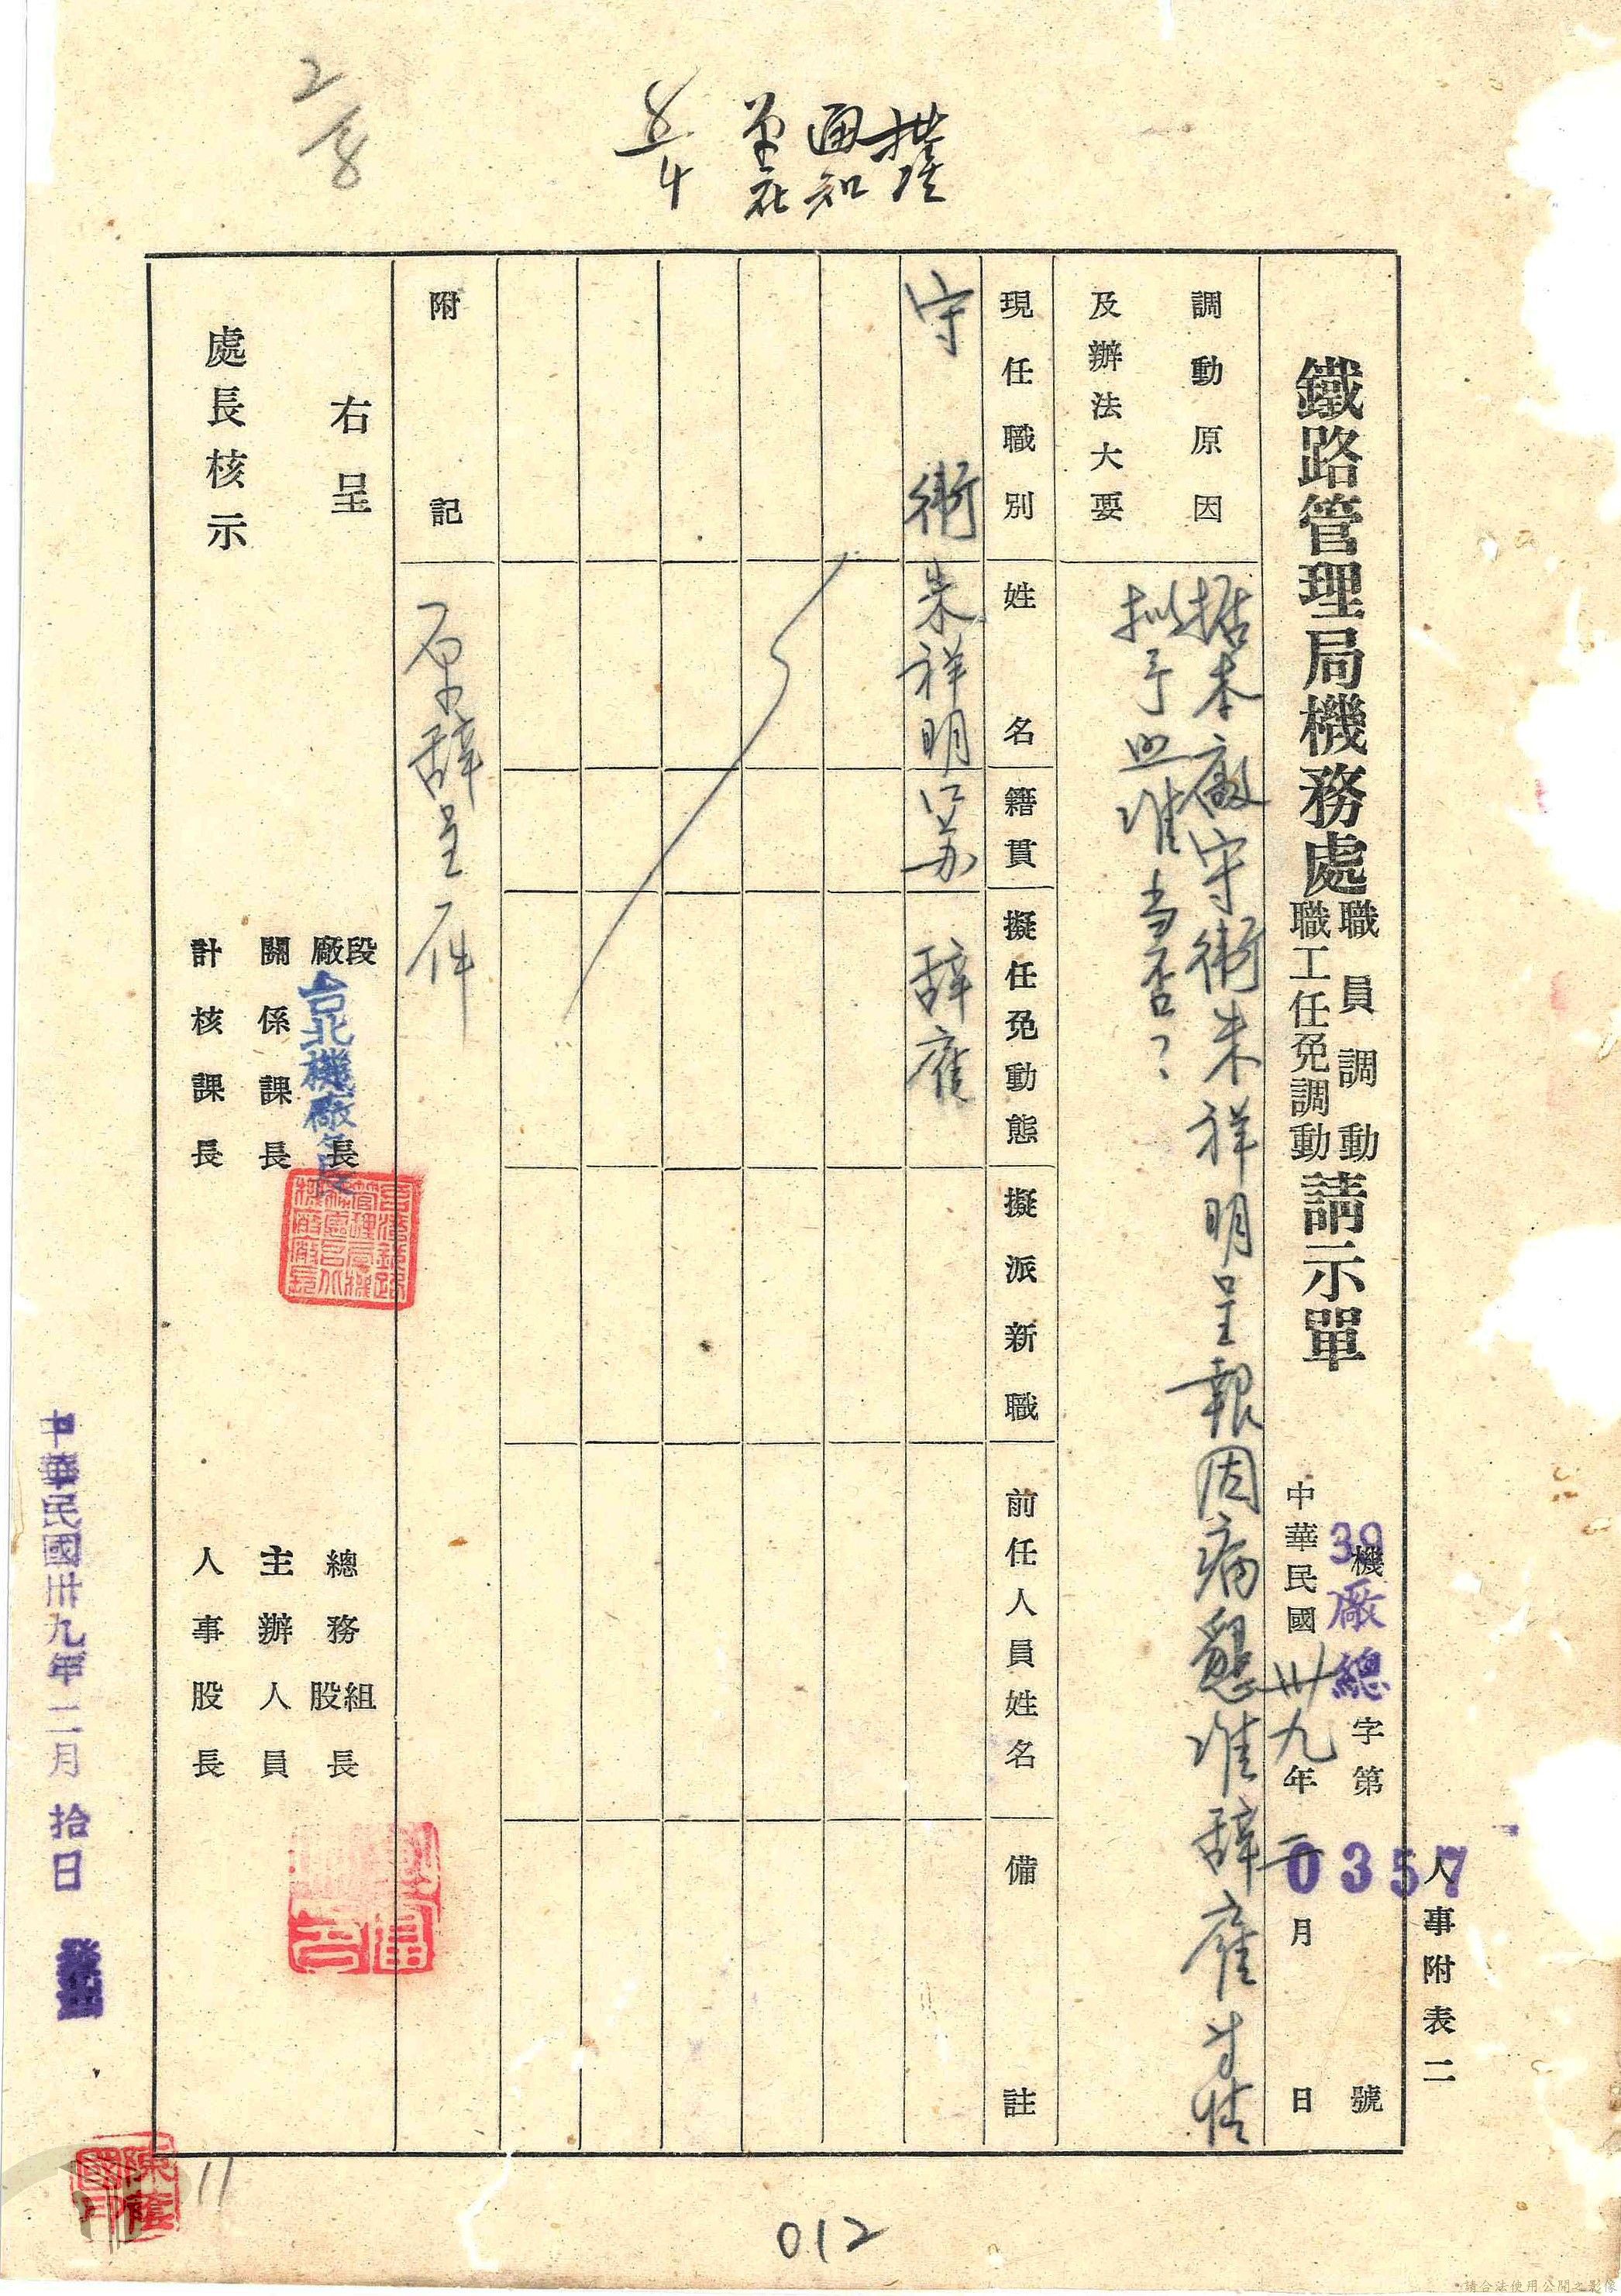 人事附表二
鐵路管理局機務處職員調動職工任免調動請示單
39機廠總字第0357號
中華民國卅九年二月 日
調動原因及辦法大要
据本廠守衛朱祥明呈報因病懇准辞雇等情
拟予照准当否?
現任職別 姓名 籍貫 擬任免動態 擬派新職 前任人員姓名 備註
守衛 朱祥明 江苏 辞雇
附記 原辞呈一件
右呈
處長核示
段廠長 台北機廠長
關係課長
計核課長
總務組股長
主辦人員
人事股長
中華民國卅九年二月拾日
通知
2/8
陳蔭國印
11
012
請合法使用公開之影像